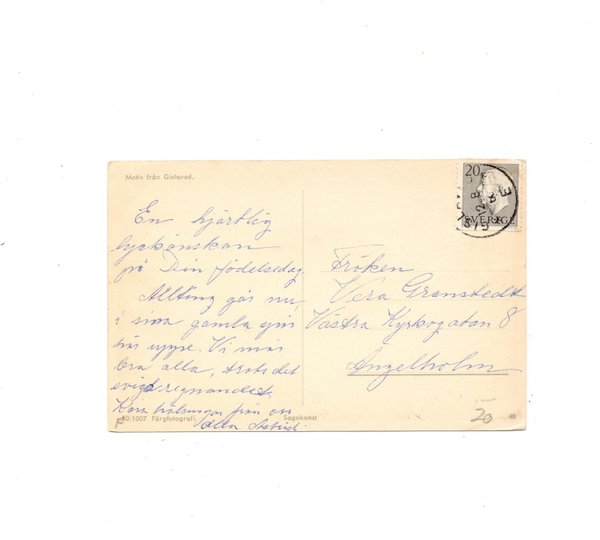 Motiv från Gislaved.
20
SVERIGE
En hjärtlig
lyckönskan
på Din födelsedag
Allting går nu
i sina gamla
här uppe. Vi mår
bra alla, trots det
eviga regnandet.
Kära hälsningar från oss
alla Astrid.
Fröken
Vera Granstedt
Västra Kyrkogatan 8
Ängelholm
60/1007 Färgfotografi
Sagokonst
20
48